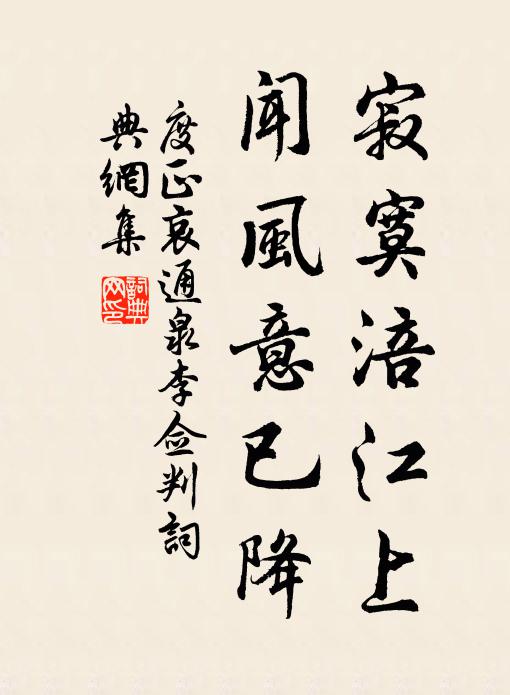 寂寞涪江上
聞風意已降
度正哀通泉李僉判詞
典網集
詞典
网印